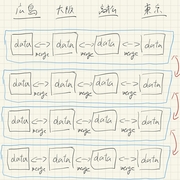 広島 大阪 東京
data data data data
merge merge merge
data data data data
merge merge merge
data data data data
merge merge merge
data data data data
merge merge merge